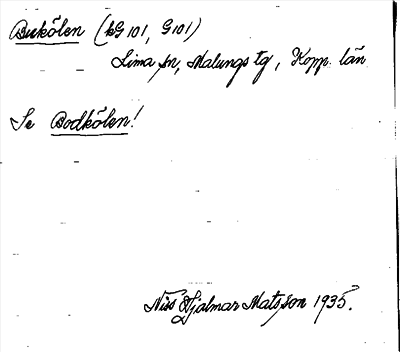 Bukölen (kG 101, G 101)
Lima sn, Malungs tg, Kopp. län
Se Bodkölen!
Niss Hjalmar Matsson 1935.